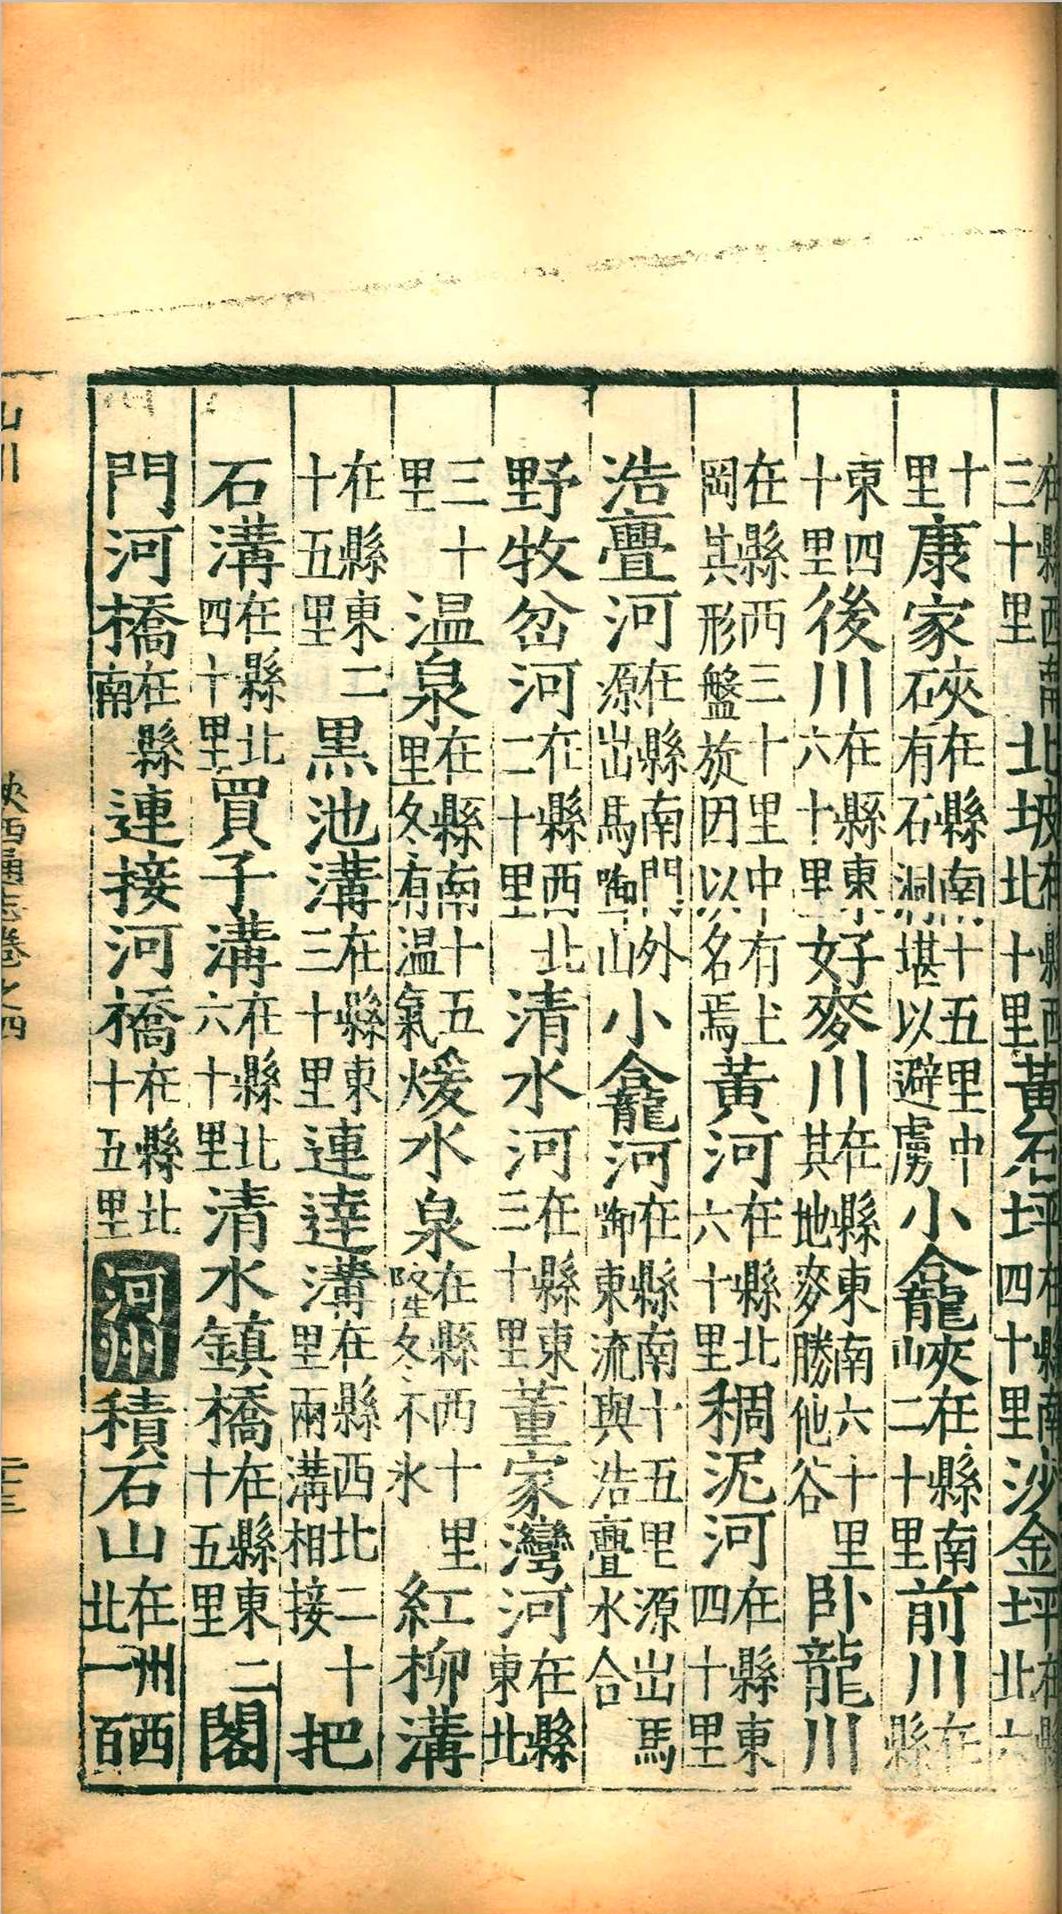 在縣西南三十里北坡在縣西北十里黃石坪在縣南四十里沙金坪在縣北六
十里康家硤在縣南十五里中有石洞堪以避虜小龕峽在縣南二十里前川在縣
東四十里後川在縣東六十里好麥川在縣東南六十里其地麥勝他谷臥龍川
在縣西三十里中有上岡其形盤旋因以名焉黃河在縣北六十里稠泥河在縣東四十里
浩亹河在縣南門外源出馬啣山小龕河在縣南十五里源出馬啣東流與浩亹水合
野牧岔河在縣西北二十里清水河在縣東三十里董家灣河在縣東北
三十里温泉在縣南十五里冬有温氣煖水泉在縣西十里隆冬不氷紅柳溝
在縣東二十五里黑池溝在縣東三十里連達溝在縣西北二十里兩溝相接把
石溝在縣北四十里買子溝在縣北六十里清水鎮橋在縣東二十五里閣
門河橋在縣南連接河橋在縣北十五里河州積石山在州西北一百
山川
陜西通志卷之四